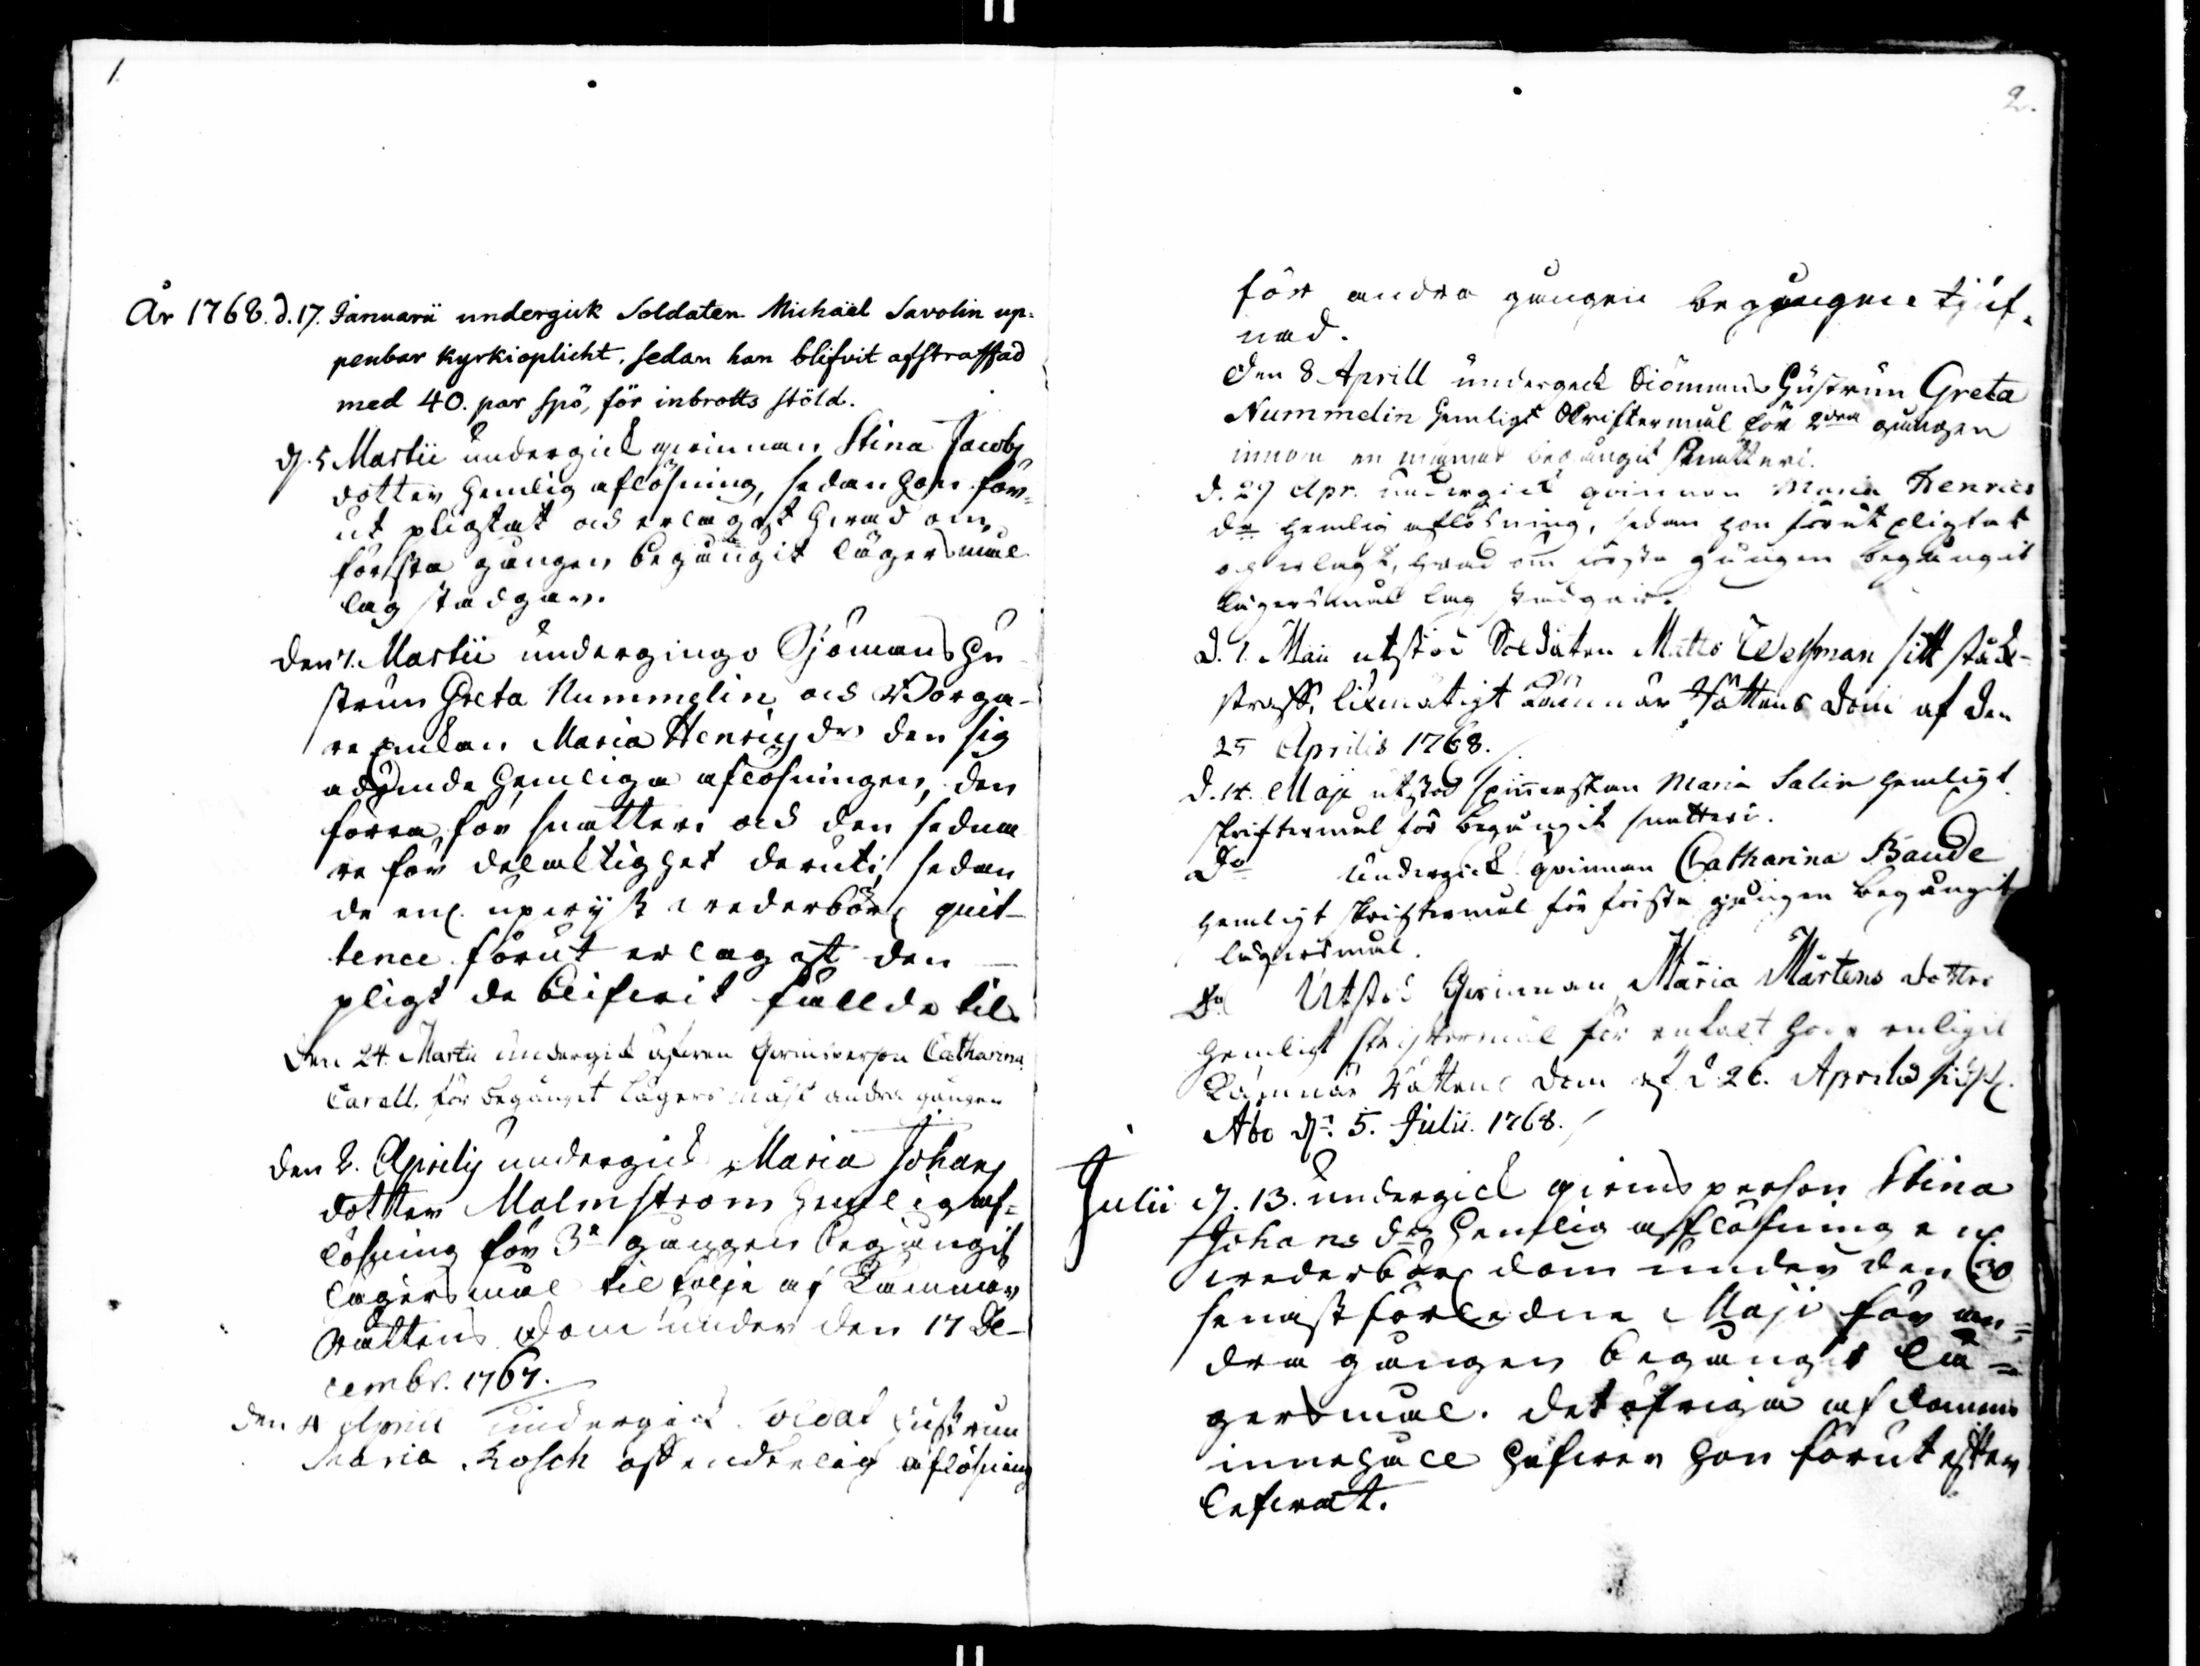 1.
År 1768. d. 17. Januarii undergick Soldaten Michaël Savolin up-
penbar kyrkioplicht, sedan han blifvit afstraffad
med 40. par spö, för inbrotts stöld.
d. 5 Martii undergick qvinnan Stina Jacobs
dotter hemlig aflösning, sedan honför-
ut pligtat och erlagt hvad om
första gången begångit lägersmål
lag stadgar.
den Martii undergingo Sjömans hu-
strun Greta Nummelin och Borga-
re Enkan Maria Henrics dr den sig
hemliga aflösningen, den
förra för snatteri och den sedna-
re för delaktighet deruti, sedan
de enl. upvist vederbörl. quit-
tence förut erlagt den
pligt de blifvit fällde til.
Den 24. Martii undergick Qvinsperson Catharina
Carell. för begånget lägersmåhl andra gången
den 2. Aprilis undergick Maria Johans
dotter Malmström hemlig af-
lösning för 3e gången begångit
lägersmål til följe af Kämnärs
Rättens Dom under den 17 De-
cembr. 1767.
den 4 Aprill undergick Soldat hustrun
Maria Kosch offendtelig aflösning
2.
för andra gången begången tjuf-
nad.
Den 8 Aprill undergick Siömans Hustrun Greta
Nummelin hemligt Skriftermål för 2dra gången
innom en månad begångit snatteri.
d. 29 Apr. undergick qvinnan Maria Henrics
dr hemlig aflösning, sedan hon förut pligtat
och erlagt, hvad om första gången begångit
lägersmål lag stadgar.
d. 1. Maii utstod Soldaten Matts Welsman sitt ståck-
straff, likmätigt Kämnärs Rättens dom af den
25 Aprilis 1768.
d. 14. Maji utstod spinnerskan Maria Salin hemligt
skriftermål för begångit snatteri.
Do undergick qvinnan Catharina Baude
hemligt skriftermål för första gången begångit
lägersmål.
Do Utstod Qvinnan Maria Mårtens dotter
hemligt skriftermål för enkelt hor enligit
Kämnärs Rättens dom af d. 26. Aprilis
Åbo d. 5. Julii. 1768.
Julii d. 13. undergick qvinsperson Stina
Johans dr hemlig afflösning enl.
vederbörl. dom under den 30
senast förledne Maji för an-
dra gången begångit lä-
gersmål. det öfriga af domens
innehåll hafver hon förut efter
lefvat.